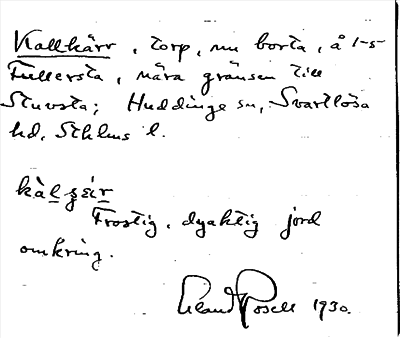 Kallkärr, torp, nu borta, å 1-5
Fullersta, nära gränsen till
Stuvsta; Huddinge sn, Svartlösa
hd, Sthlms l.
Frostig, dyaktig jord
omkring.
Erland Rosell 1930.